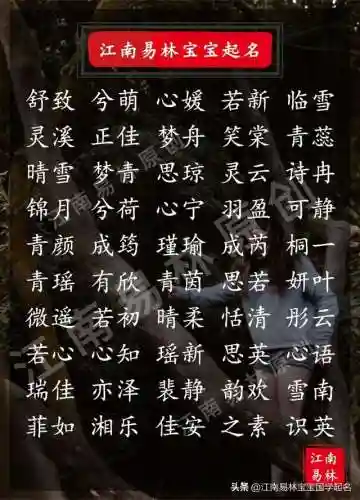 江南易林宝宝起名
舒致 兮萌 心媛 若新 临雪
灵溪 正佳 梦舟 笑棠 青蕊
晴雪 梦青 思琼 灵云 诗冉
锦月 兮荷 心宁 羽盈 可静
青颜 成筠 瑾瑜 成芮 桐一
青瑶 有欣 青茵 思若 妍叶
微遥 若初 晴柔 恬清 彤云
若心 心知 瑶新 思英 心语
瑞佳 亦泽 裴静 韵欢 雪南
菲如 湘乐 佳安 之素 识英
江南
易林
头条 @江南易林宝宝国学起名
江南易林原创
江南易林原创